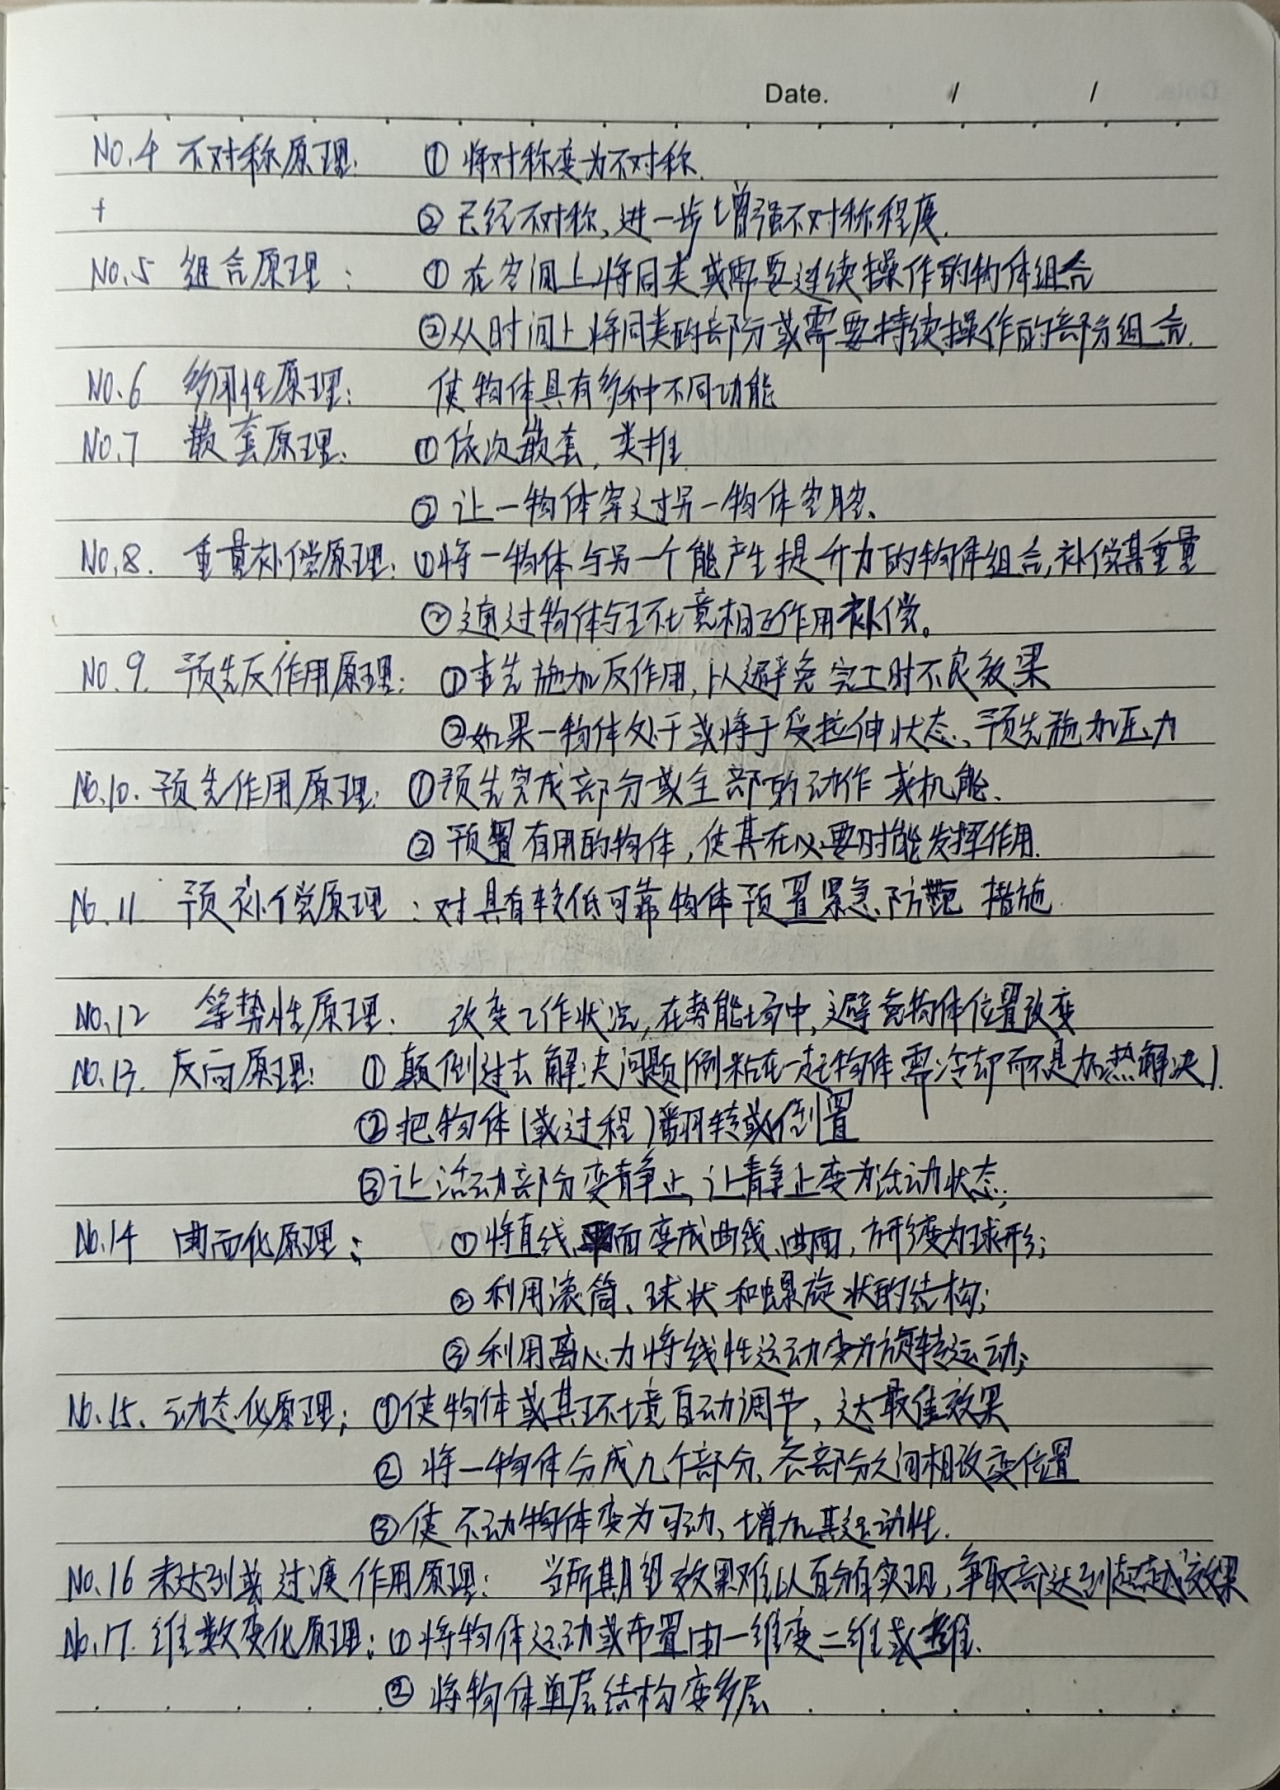 Date. / /
No.4 不对称原理: ① 将对称变为不对称.
+ ② 已经不对称,进一步增强不对称程度.
No.5 组合原理: ① 在空间上将同类或需要连续操作的物体组合
②从时间上将同类的部分或需要持续操作的部分组合.
No.6 多用性原理: 使物体具有多种不同功能
No.7 嵌套原理. ①依次嵌套,类推
② 让一物体穿过另一物体空腔、
No.8. 重量补偿原理: ①将一物体与另一个能产生提升力的物体组合,补偿其重量
②通过物体与环境相互作用补偿。
No.9. 预先反作用原理: ①事先施加反作用,以避免完工时不良效果
②如果一物体处于或将于受拉伸状态、预先施加压力
No.10. 预先作用原理: ①预先完成部分或全部的动作或机能、
② 预置有用的物体,使其在必要时能发挥作用.
No.11 预补偿原理: 对具有较低可靠物体预置紧急防范措施
No.12 等势性原理: 改变工作状况,在势能场中,避免物体位置改变
No.13. 反向原理: ① 颠倒过去解决问题(例粘在一起物体需冷却而不是加热解决).
②把物体(或过程)翻转或倒置
③让活动部分变静止,让静止变为活动状态;
No.14 曲面化原理; ①将直线、平面变成曲线、曲面,方形变为球形;
② 利用滚筒、球状和螺旋状的结构;
③ 利用离心力将线性运动变为旋转运动;
No.15. 动态化原理; ①使物体或其环境自动调节,达最佳效果
② 将一物体分成几个部分、各部分之间相改变位置
③使不动物体变为可动,增加其运动性.
No.16 未达到或过渡作用原理: 当所期望效果难以百分百实现,争取部达到超越该效果
No.17. 维数变化原理: ①将物体运动或布置由一维变二维或维.
② 将物体单层结构变多层